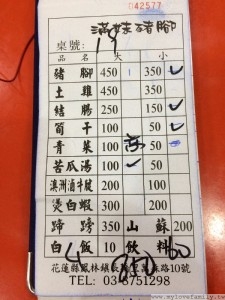 042577
滿妹豬腳
桌號: 19
品名 大 小
豬腳 450 350
土雞 450 350
結腸 250 150
筍干 100 50
青菜 100 50
苦瓜湯 100 50
澳洲滷牛腱 200
燙白蝦 300
蹄膀 350 山蘇
白飯 10 飲料
花蓮縣鳳林鎮 路10號
TEL: 038751298
www.mylovefamily.tw